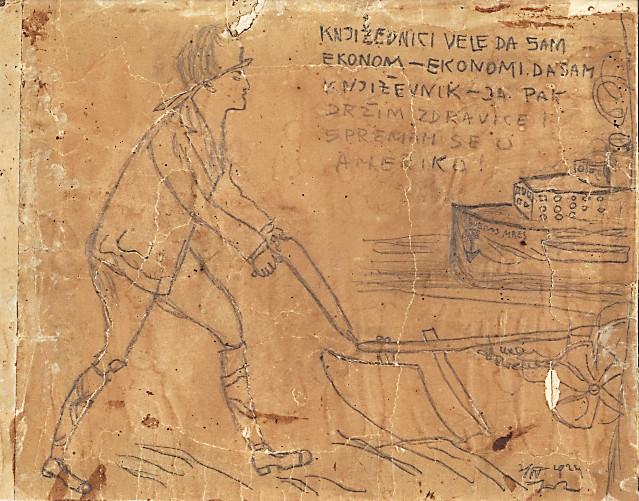 KNJIŽEDNICI VELE DA SAM
EKONOM — EKONOMI. DA SAM
KNJIŽEVNIK — JA PAK
DRŽIM ZDRAVICE I
SPREMAM SE U
AMERIKU!